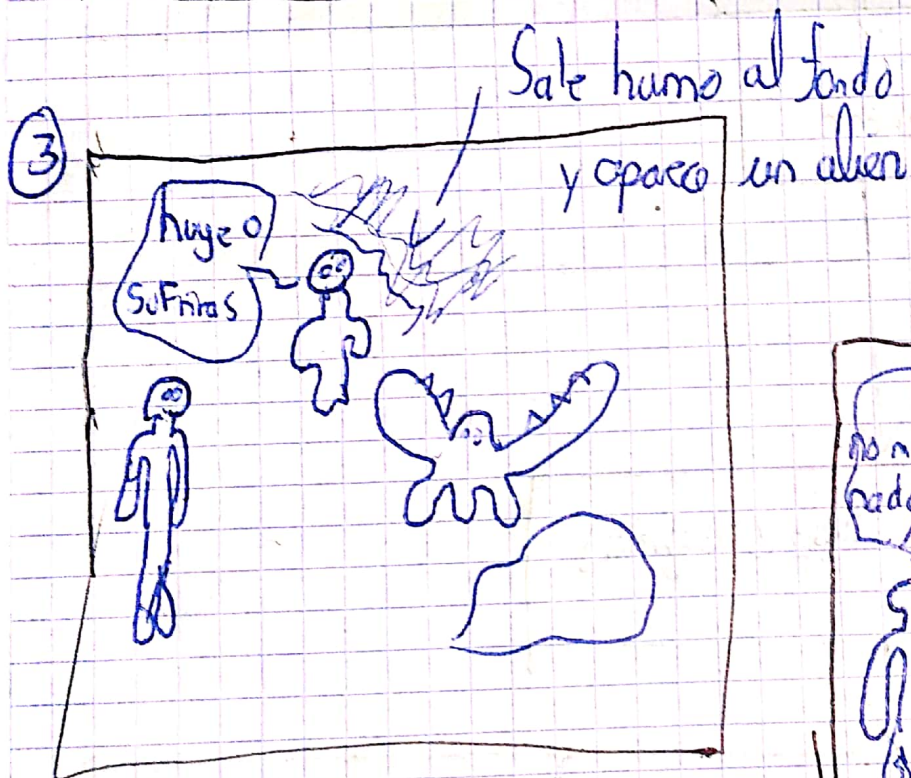 Sale humo al fondo
y aparece un alien
3
huye o
sufriras
no
nada